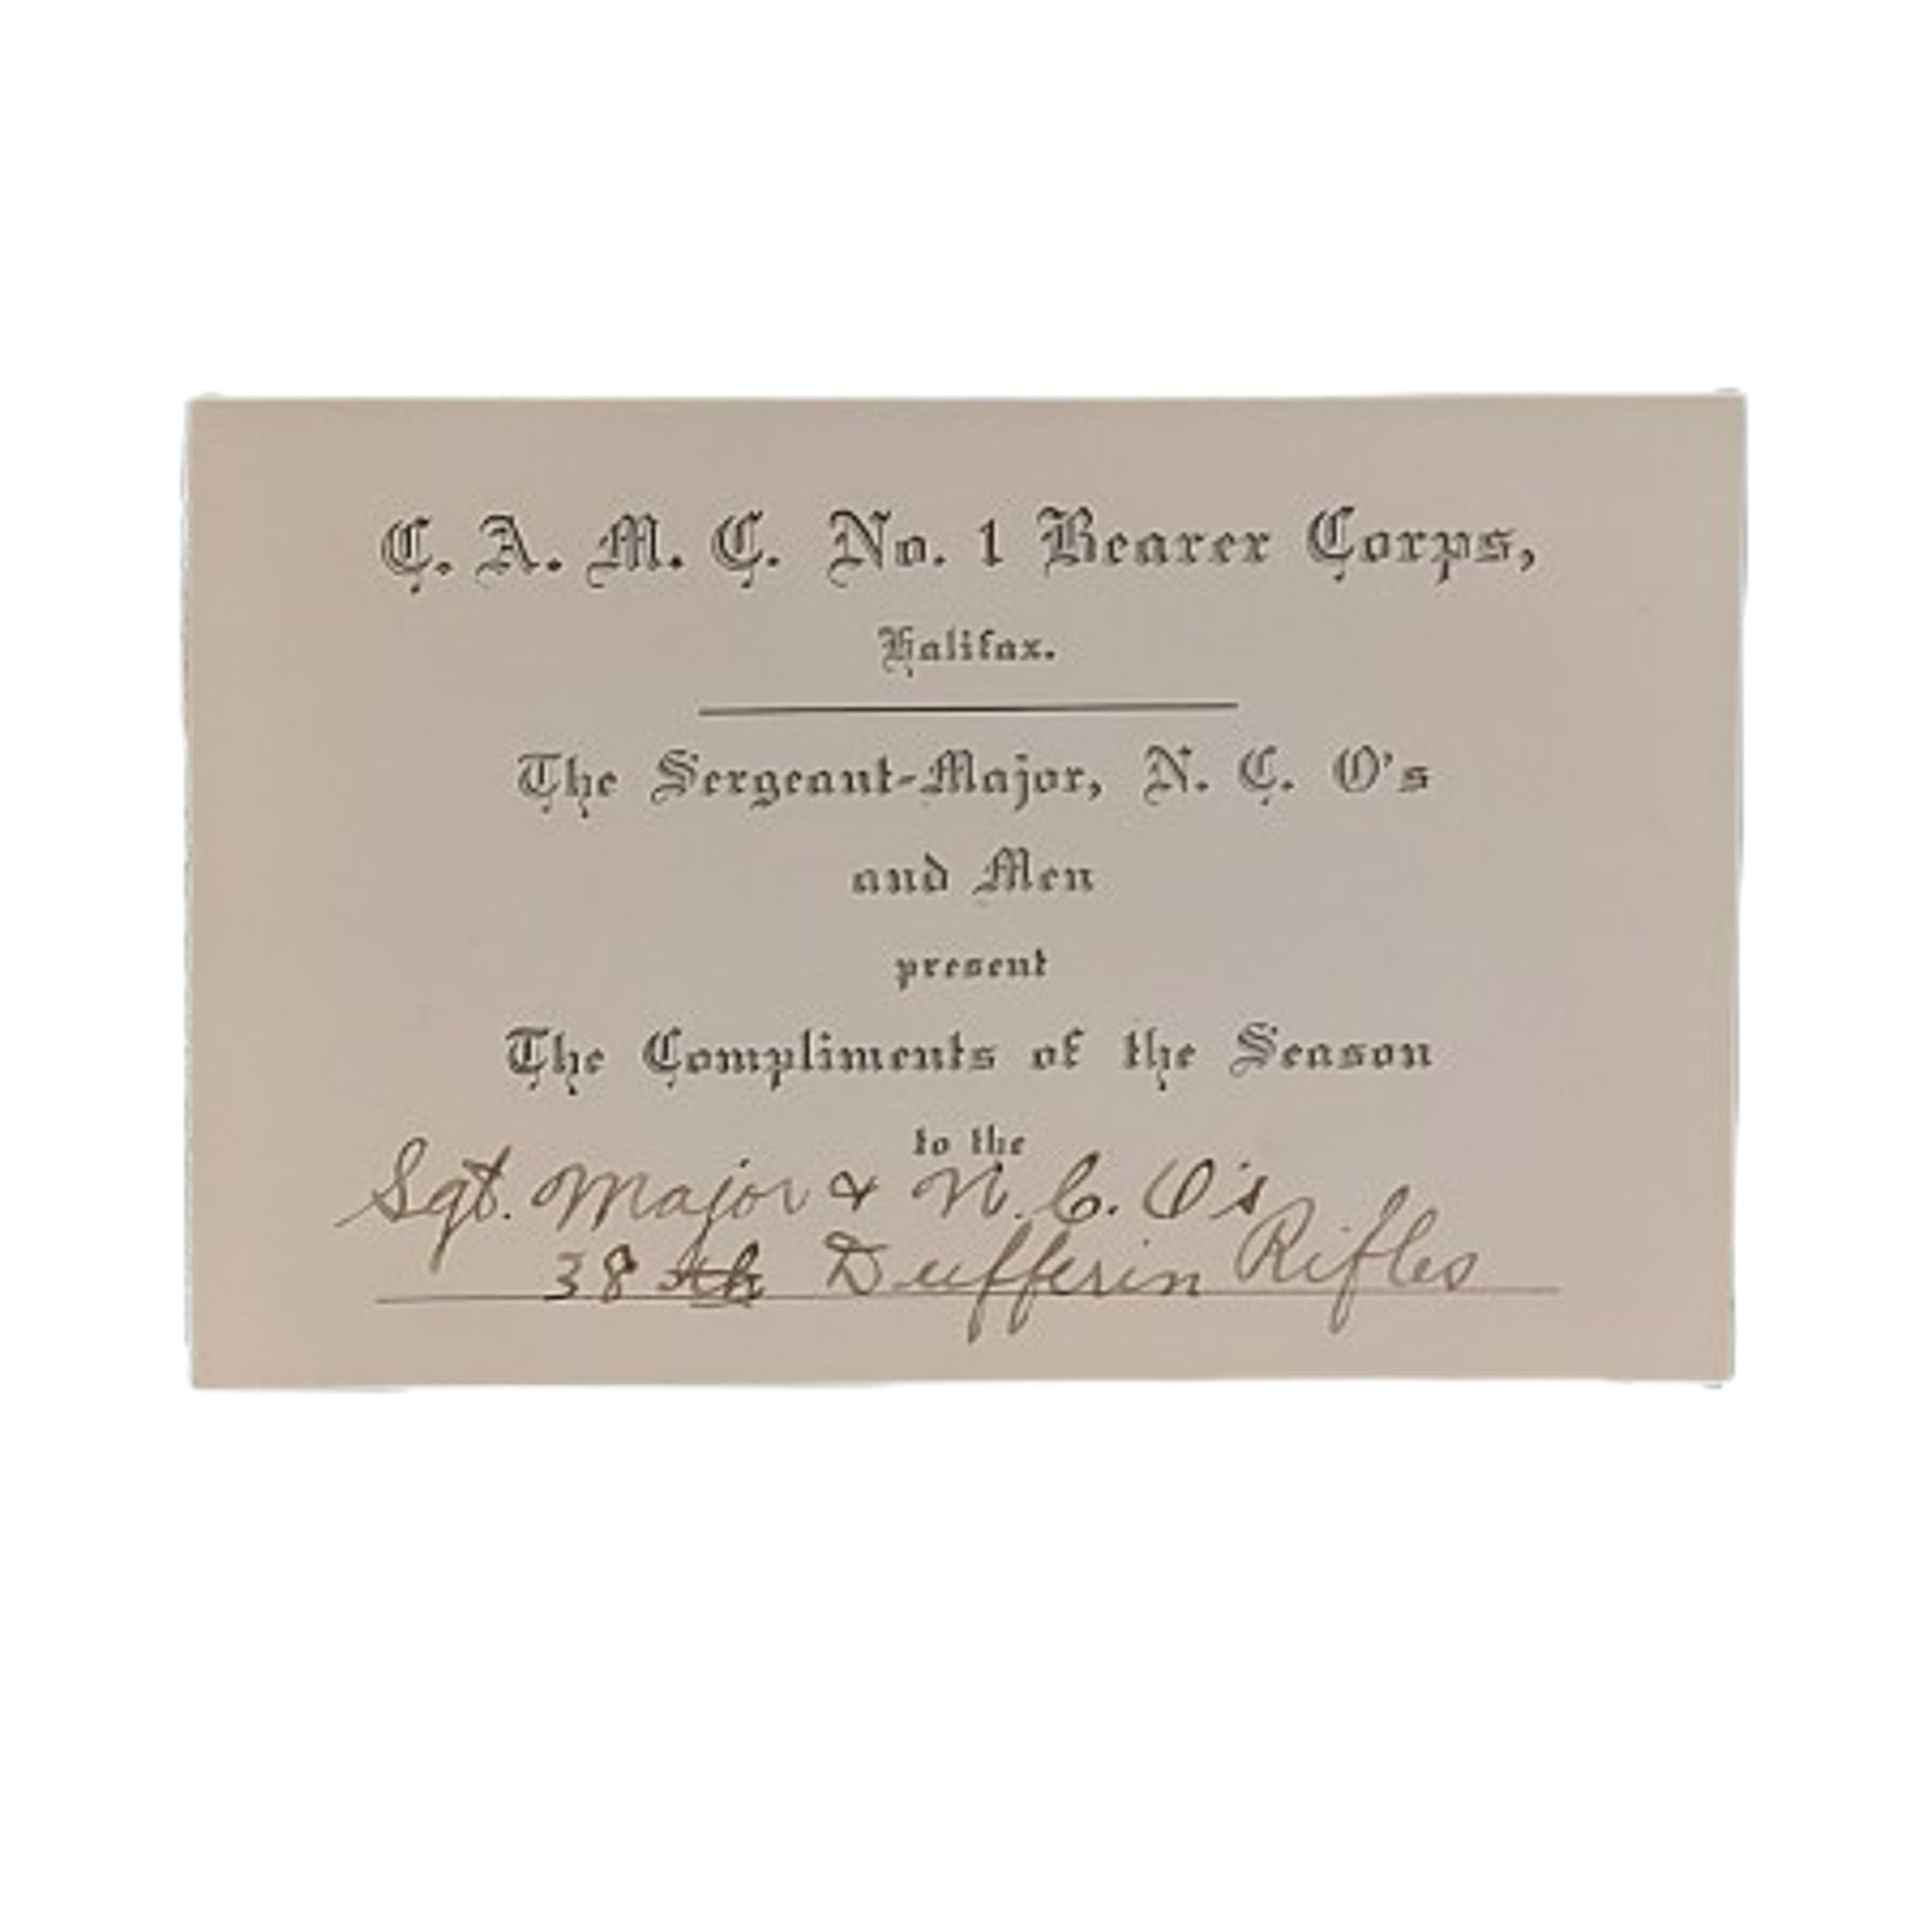 C. A. M. C. No. 1 Bearer Corps,
Halifax.
The Sergeant-Major, N. C. O's
and Men
present
The Compliments of the Season
to the
Sgt. Major & N. C. O's
38th Dufferin Rifles